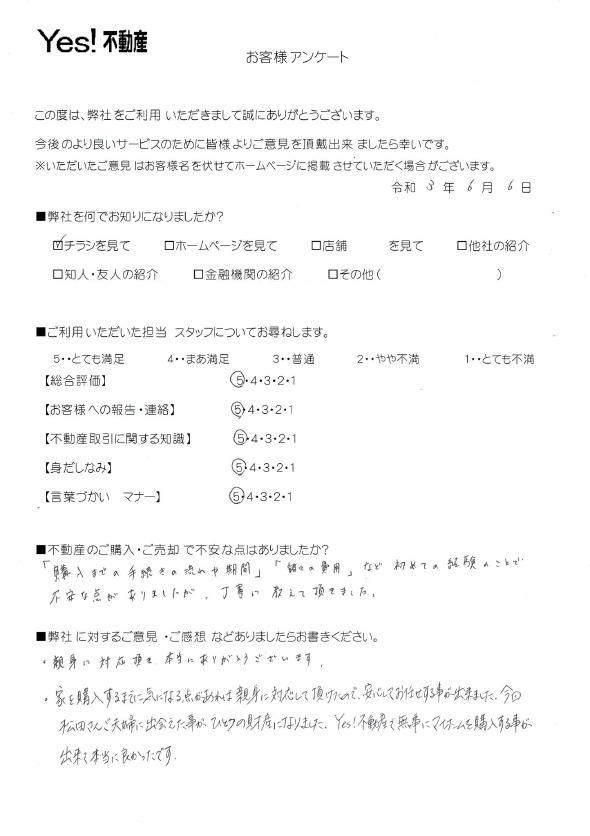 Yes!不動産
お客様アンケート
この度は、弊社をご利用いただきまして誠にありがとうございます。
今後のより良いサービスのために皆様よりご意見を頂戴出来ましたら幸いです。
※いただいたご意見はお客様名を伏せてホームページに掲載させていただく場合がございます。
令和 3 年 6 月 6 日
■弊社を何でお知りになりましたか?
☑チラシを見て □ホームページを見て □店舗 を見て □他社の紹介
□知人・友人の紹介 □金融機関の紹介 □その他( )
■ご利用いただいた担当 スタッフについてお尋ねします。
5・・とても満足 4・・まあ満足 3・・普通 2・・やや不満 1・・とても不満
【総合評価】 5・4・3・2・1
【お客様への報告・連絡】 5・4・3・2・1
【不動産取引に関する知識】 5・4・3・2・1
【身だしなみ】 5・4・3・2・1
【言葉づかい マナー】 5・4・3・2・1
■不動産のご購入・ご売却で不安な点はありましたか?
「購入までの手続きの流れや期間」「諸々の費用」など初めての経験のことで
不安な点がありましたが、丁寧に教えて頂きました。
■弊社に対するご意見・ご感想などありましたらお書きください。
・親身に対応頂き本当にありがとうございます。
・家を購入するまでに気になる点があれば親身に対応して頂けたので、安心してお任せする事が出来ました。今回
松田さんご夫婦に出会えた事がひとつの財産になりました。Yes!不動産で無事にマイホームを購入する事が
出来て本当に良かったです。